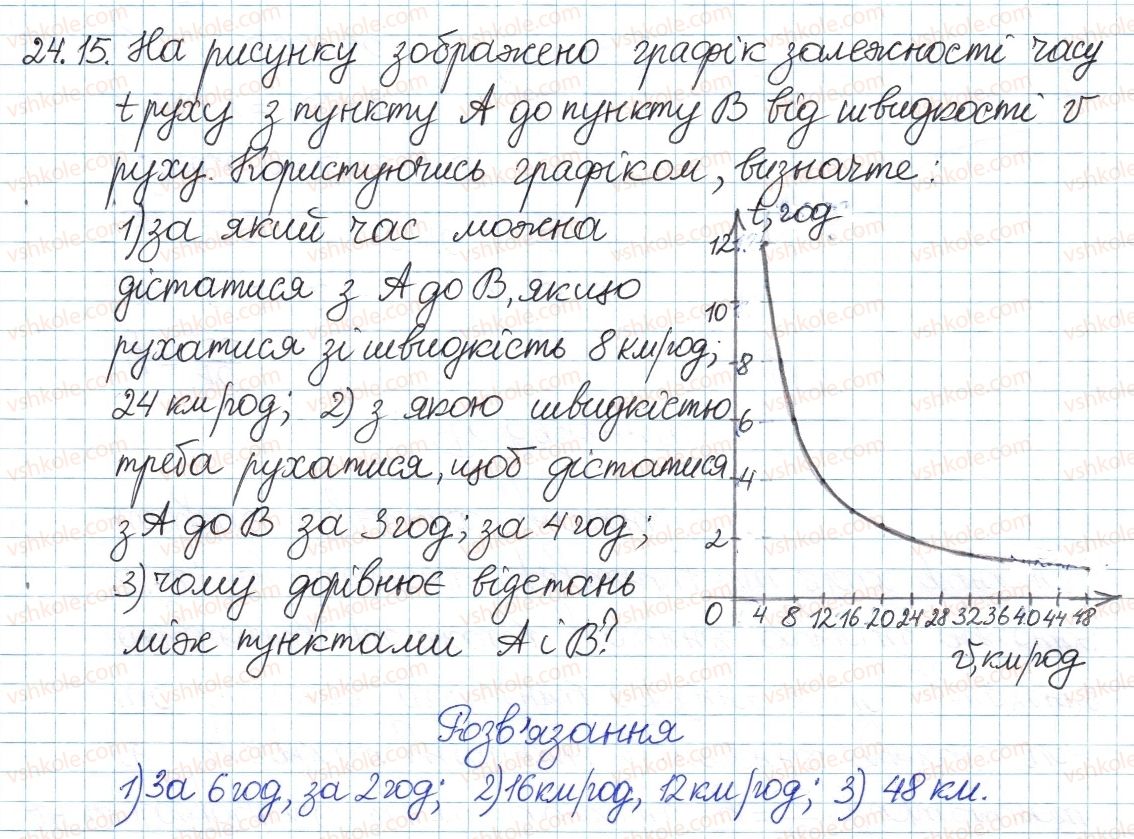 24.15. На рисунку зображено графік залежності часу
t руху з пункту A до пункту B від швидкості v
руху. Користуючись графіком, визначте:
1) за який час можна
дістатися з A до B, якщо
рухатися зі швидкість 8 км/год;
24 км/год; 2) з якою швидкістю
треба рухатися, щоб дістатися
з A до B за 3 год; за 4 год;
3) чому дорівнює відстань
між пунктами A і B?
t, год
12
10
8
6
4
2
0 4 8 12 16 20 24 28 32 36 40 44 48
v, км/год
Розв'язання
1) За 6 год, за 2 год; 2) 16 км/год, 12 км/год; 3) 48 км.